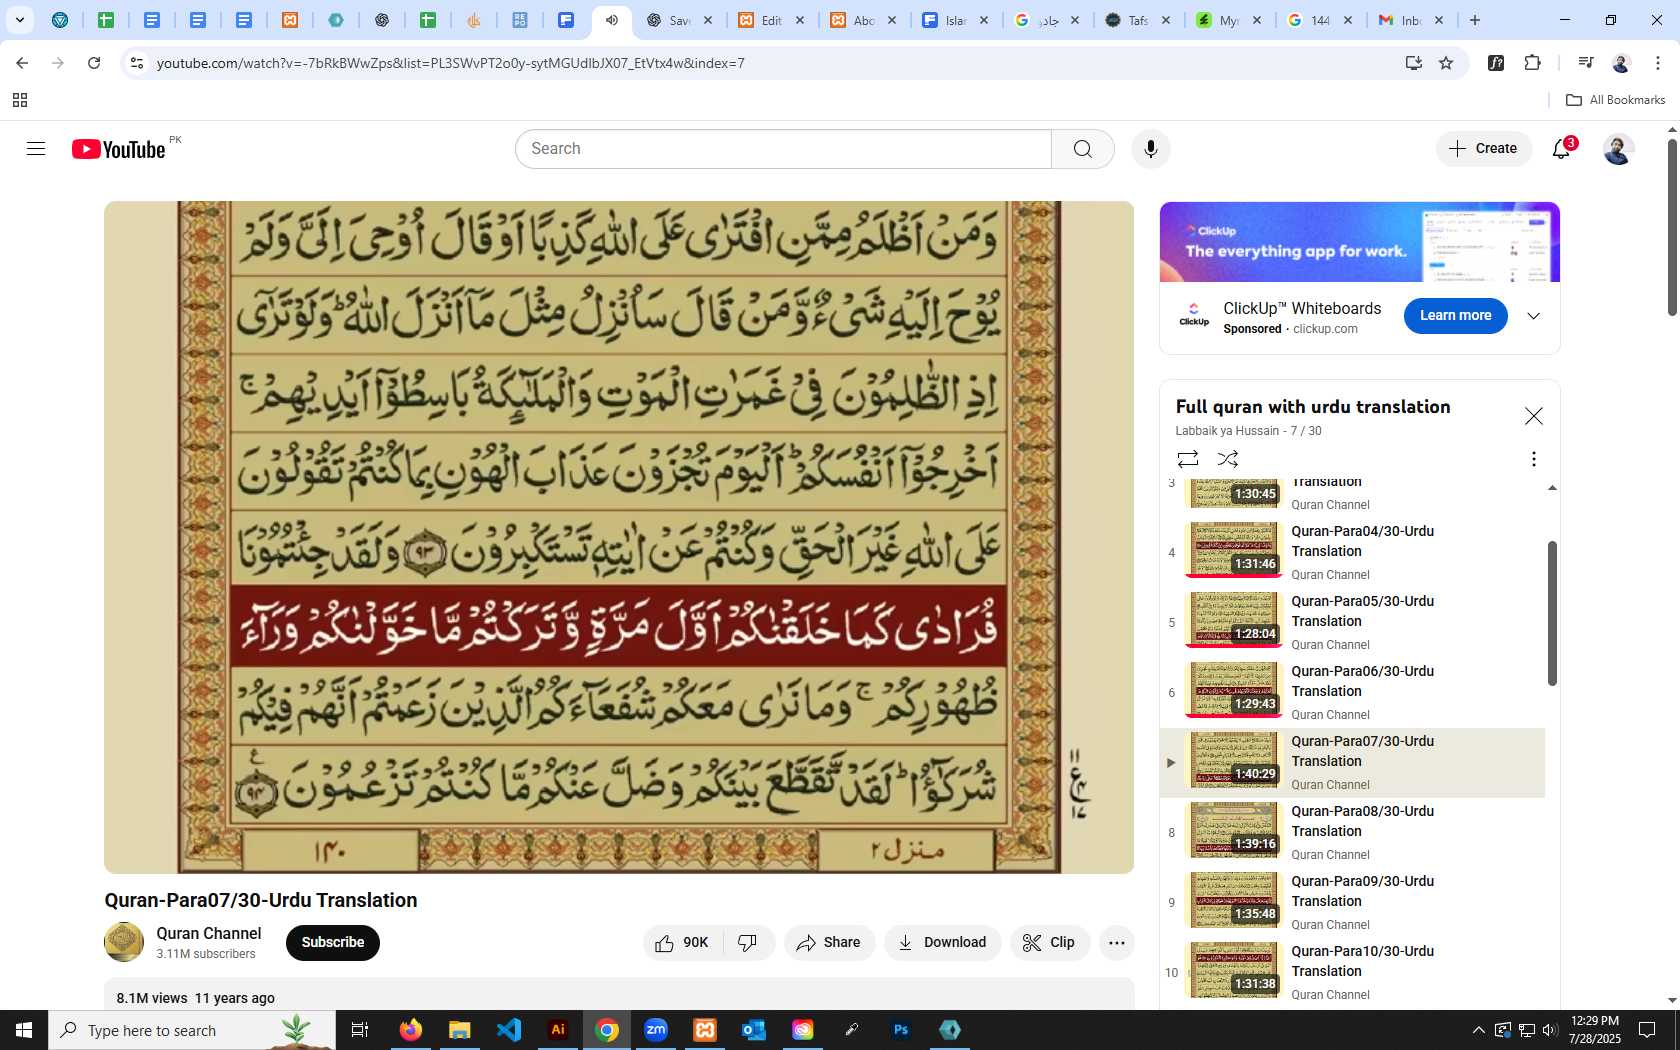 Save
Edit
Abo
Islar
جادو
Tafs
Myr
144
Inbo
youtube.com/watch?v=-7bRkBWwZps&list=PL3SWvPT2o0y-sytMGUdIbJX07_EtVtx4w&index=7
All Bookmarks
YouTube PK
Search
Create
3
وَمَنْ اَظْلَمُ مِمَّنِ افْتَرٰى عَلَى اللّٰهِ كَذِبًا اَوْ قَالَ اُوْحِىَ اِلَىَّ وَلَمْ
يُوْحَ اِلَيْهِ شَىْءٌ وَّمَنْ قَالَ سَاُنْزِلُ مِثْلَ مَاۤ اَنْزَلَ اللّٰهُ ؕ وَلَوْ تَرٰٓى
اِذِ الظّٰلِمُوْنَ فِىْ غَمَرٰتِ الْمَوْتِ وَالْمَلٰٓئِكَةُ بَاسِطُوْۤا اَيْدِيْهِمْ ۚ
اَخْرِجُوْۤا اَنْفُسَكُمْ ؕ اَلْيَوْمَ تُجْزَوْنَ عَذَابَ الْهُوْنِ بِمَا كُنْتُمْ تَقُوْلُوْنَ
عَلَى اللّٰهِ غَيْرَ الْحَقِّ وَكُنْتُمْ عَنْ اٰيٰتِهٖ تَسْتَكْبِرُوْنَ ﴿۹۳﴾ وَلَقَدْ جِئْتُمُوْنَا
فُرَادٰى كَمَا خَلَقْنٰكُمْ اَوَّلَ مَرَّةٍ وَّتَرَكْتُمْ مَّا خَوَّلْنٰكُمْ وَرَآءَ
ظُهُوْرِكُمْ ۚ وَمَا نَرٰى مَعَكُمْ شُفَعَآءَكُمُ الَّذِيْنَ زَعَمْتُمْ اَنَّهُمْ فِيْكُمْ
شُرَكٰٓؤُا ؕ لَقَدْ تَّقَطَّعَ بَيْنَكُمْ وَضَلَّ عَنْكُمْ مَّا كُنْتُمْ تَزْعُمُوْنَ ﴿۹۴﴾
۱۱ ع ۱۷
منزل ۲
۱۴۰
Quran-Para07/30-Urdu Translation
Quran Channel
3.11M subscribers
Subscribe
90K
Share
Download
Clip
8.1M views 11 years ago
ClickUp
The everything app for work.
ClickUp
ClickUp™ Whiteboards
Sponsored · clickup.com
Learn more
Full quran with urdu translation
Labbaik ya Hussain - 7 / 30
3
1:30:45
Translation
Quran Channel
4
1:31:46
Quran-Para04/30-Urdu
Translation
Quran Channel
5
1:28:04
Quran-Para05/30-Urdu
Translation
Quran Channel
6
1:29:43
Quran-Para06/30-Urdu
Translation
Quran Channel
1:40:29
Quran-Para07/30-Urdu
Translation
Quran Channel
8
1:39:16
Quran-Para08/30-Urdu
Translation
Quran Channel
9
1:35:48
Quran-Para09/30-Urdu
Translation
Quran Channel
10
1:31:38
Quran-Para10/30-Urdu
Translation
Quran Channel
Type here to search
Ai
zm
Ps
12:29 PM
7/28/2025